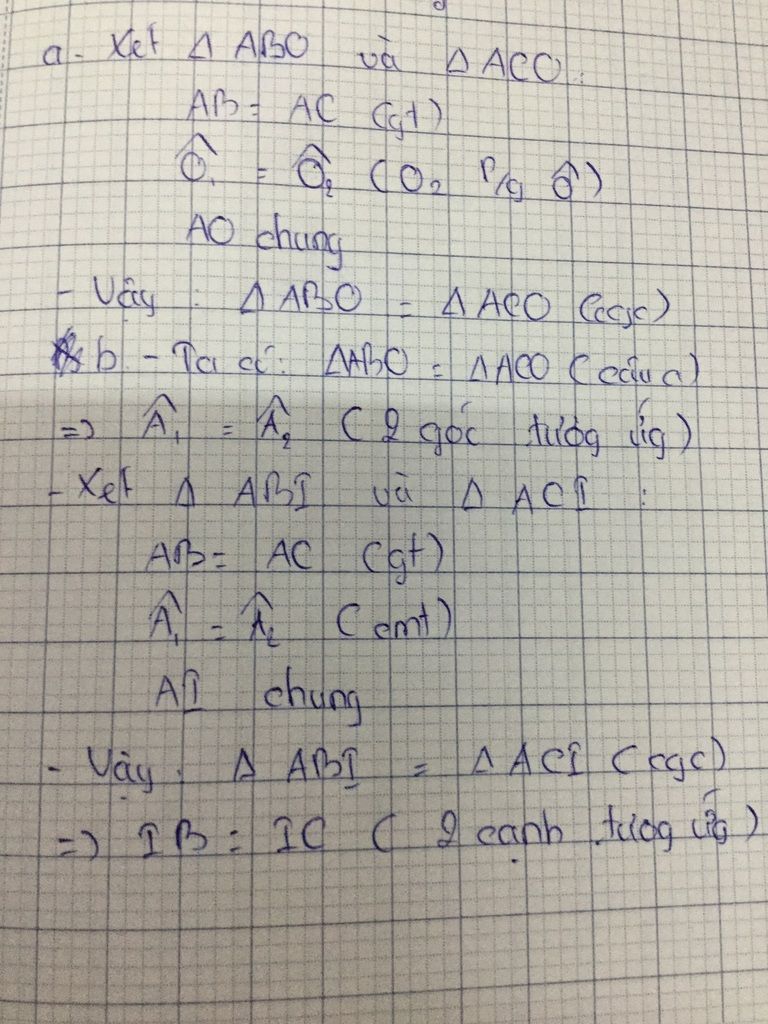 a - Xét Δ ABO và Δ ACO :
AB = AC (gt)
Ô₁ = Ô₂ (O₂ P/g Ô)
AO chung
- Vậy : Δ ABO = Δ ACO (cgc)
b - Ta có: ΔABO = ΔACO (câu a)
=> Â₁ = Â₂ ( 2 góc tướg ứg )
- Xét Δ ABI và Δ ACI :
AB = AC (gt)
Â₁ = Â₂ ( cmt)
AI chung
- Vậy : Δ ABI = Δ ACI ( cgc)
=> IB = IC ( 2 cạnh tươg ứg )